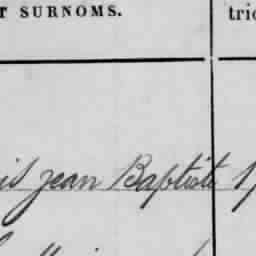 T SURNOMS. tric
is Jean Baptiste 1